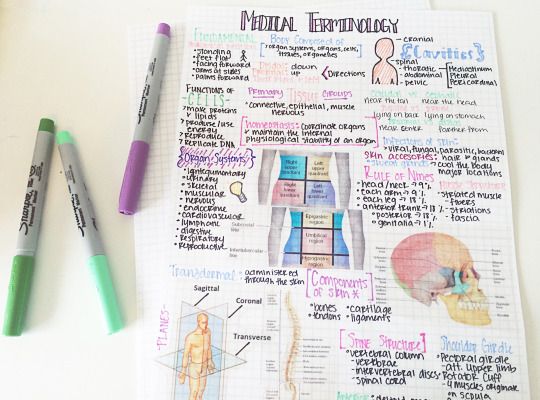 MEDICAL TERMINOLOGY
FUNDAMENTAL
• standing
• feet flat
• facing forward
• arms at sides
• palms forward
Body Composed of
organ systems, organs, cells,
tissues, organelles
down
up
Directions
cranial
Cavities
spinal
• thoracic
• abdominal
• pelvic
Mediastinum
Pleural
Pericardinal
FUNCTIONS OF
CELLS-
• make proteins
& lipids
• produce/use
energy
• Reproduce
• Replicate DNA
PRIMARY TISSUE GROUPS
• connective, epithelial, muscle
nervous
Homeostasis: coordinate organs
& maintain the internal
physiological stability of an organ
near the tail near the head
lying on back lying on stomach
near center farther from
Infections of skin:
• viral, fungal, parasitic, bacterial
skin accesories: hair & glands
sweat glands → cool the body
major locations
Organ Systems
• integumentary
• urinary
• skeletal
• muscular
• nervous
• endocrine
• cardiovascular
• lymphatic
• digestive
• Respiratory
• Reproductive
Right upper quadrant
Left upper quadrant
Right lower quadrant
Left lower quadrant
Epigastric region
Umbilical region
Hypogastric region
Subcostal line
Intertubercular line
RULE OF NINES
• head/neck → 9%
• each arm → 9%
• each leg → 18%
• anterior trunk → 18%
• posterior → 18%
• genitalia → 1%
• striated muscle
- fibers
- striations
- fascia
Transdermal: administered
through the skin
Components
of skin*
• bones • cartilage
• tendons • ligaments
-PLANES-
Sagittal
Coronal
Transverse
[SPINE STRUCTURE]
• vertebral column
• vertebrae
• intervertebral discs
• spinal cord
Shoulder Girdle
• Pectoral girdle
- att. upper limb
• Rotator Cuff
- 4 muscles originate
on scapula
Sharpie